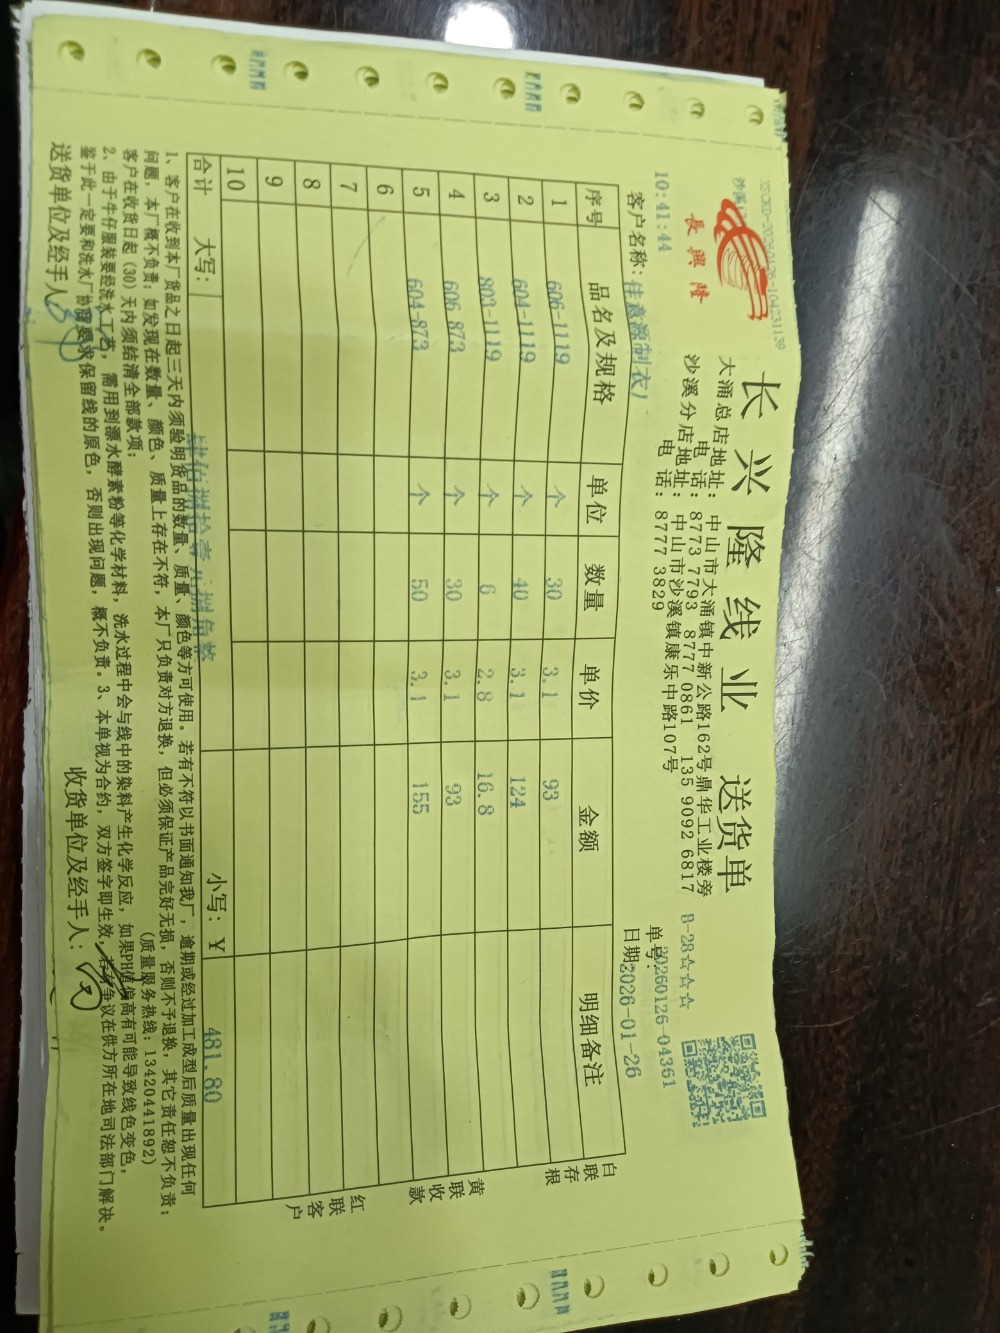 XSCKD-20260126-104231139
長興隆
长兴隆线业 送货单
大涌总店地址:中山市大涌镇中新公路162号鼎华工业楼旁
电 话:8773 7793 8777 0861 135 9092 6817
沙溪分店地址:中山市沙溪镇康乐中路107号
电 话:8777 3829
B-28☆☆☆
10:41:44
单号:20260126-04361
客户名称:佳意源制衣厂
日期2026-01-26
序号 品名及规格 单位 数量 单价 金额 明细备注
1 606-1119 个 30 3.1 93
2 604-1119 个 40 3.1 124
3 803-1119 个 6 2.8 16.8
4 606 873 个 30 3.1 93
5 604-873 个 50 3.1 155
6
7
8
9
10
合计 大写: 肆佰捌拾壹元捌角整 小写:¥ 481.80
白联存根
黄联收款
红联客户
1、客户在收到本厂货品之日起三天内须验明货品的数量、质量、颜色等方可使用。若有不符以书面通知我厂,逾期或经过加工成型后质量出现任何
问题,本厂概不负责;如发现在数量、颜色、质量上存在不符,本厂只负责对方退换,但必须保证产品完好无损,否则不予退换,其它责任恕不负责;
客户在收货日起(30)天内须结清全部款项; (质量服务热线:13420441892)
2、由于牛仔服装要经洗水工艺,需用到漂水酵素粉等化学材料,洗水过程中会与线中的染料产生化学反应,如果PH值偏高有可能导致线色变色,
鉴于此一定要和洗水厂协商要求保留线的原色,否则出现问题,概不负责。3、本单视为合约,双方签字即生效,若有争议在供方所在地司法部门解决。
送货单位及经手人: 收货单位及经手人: